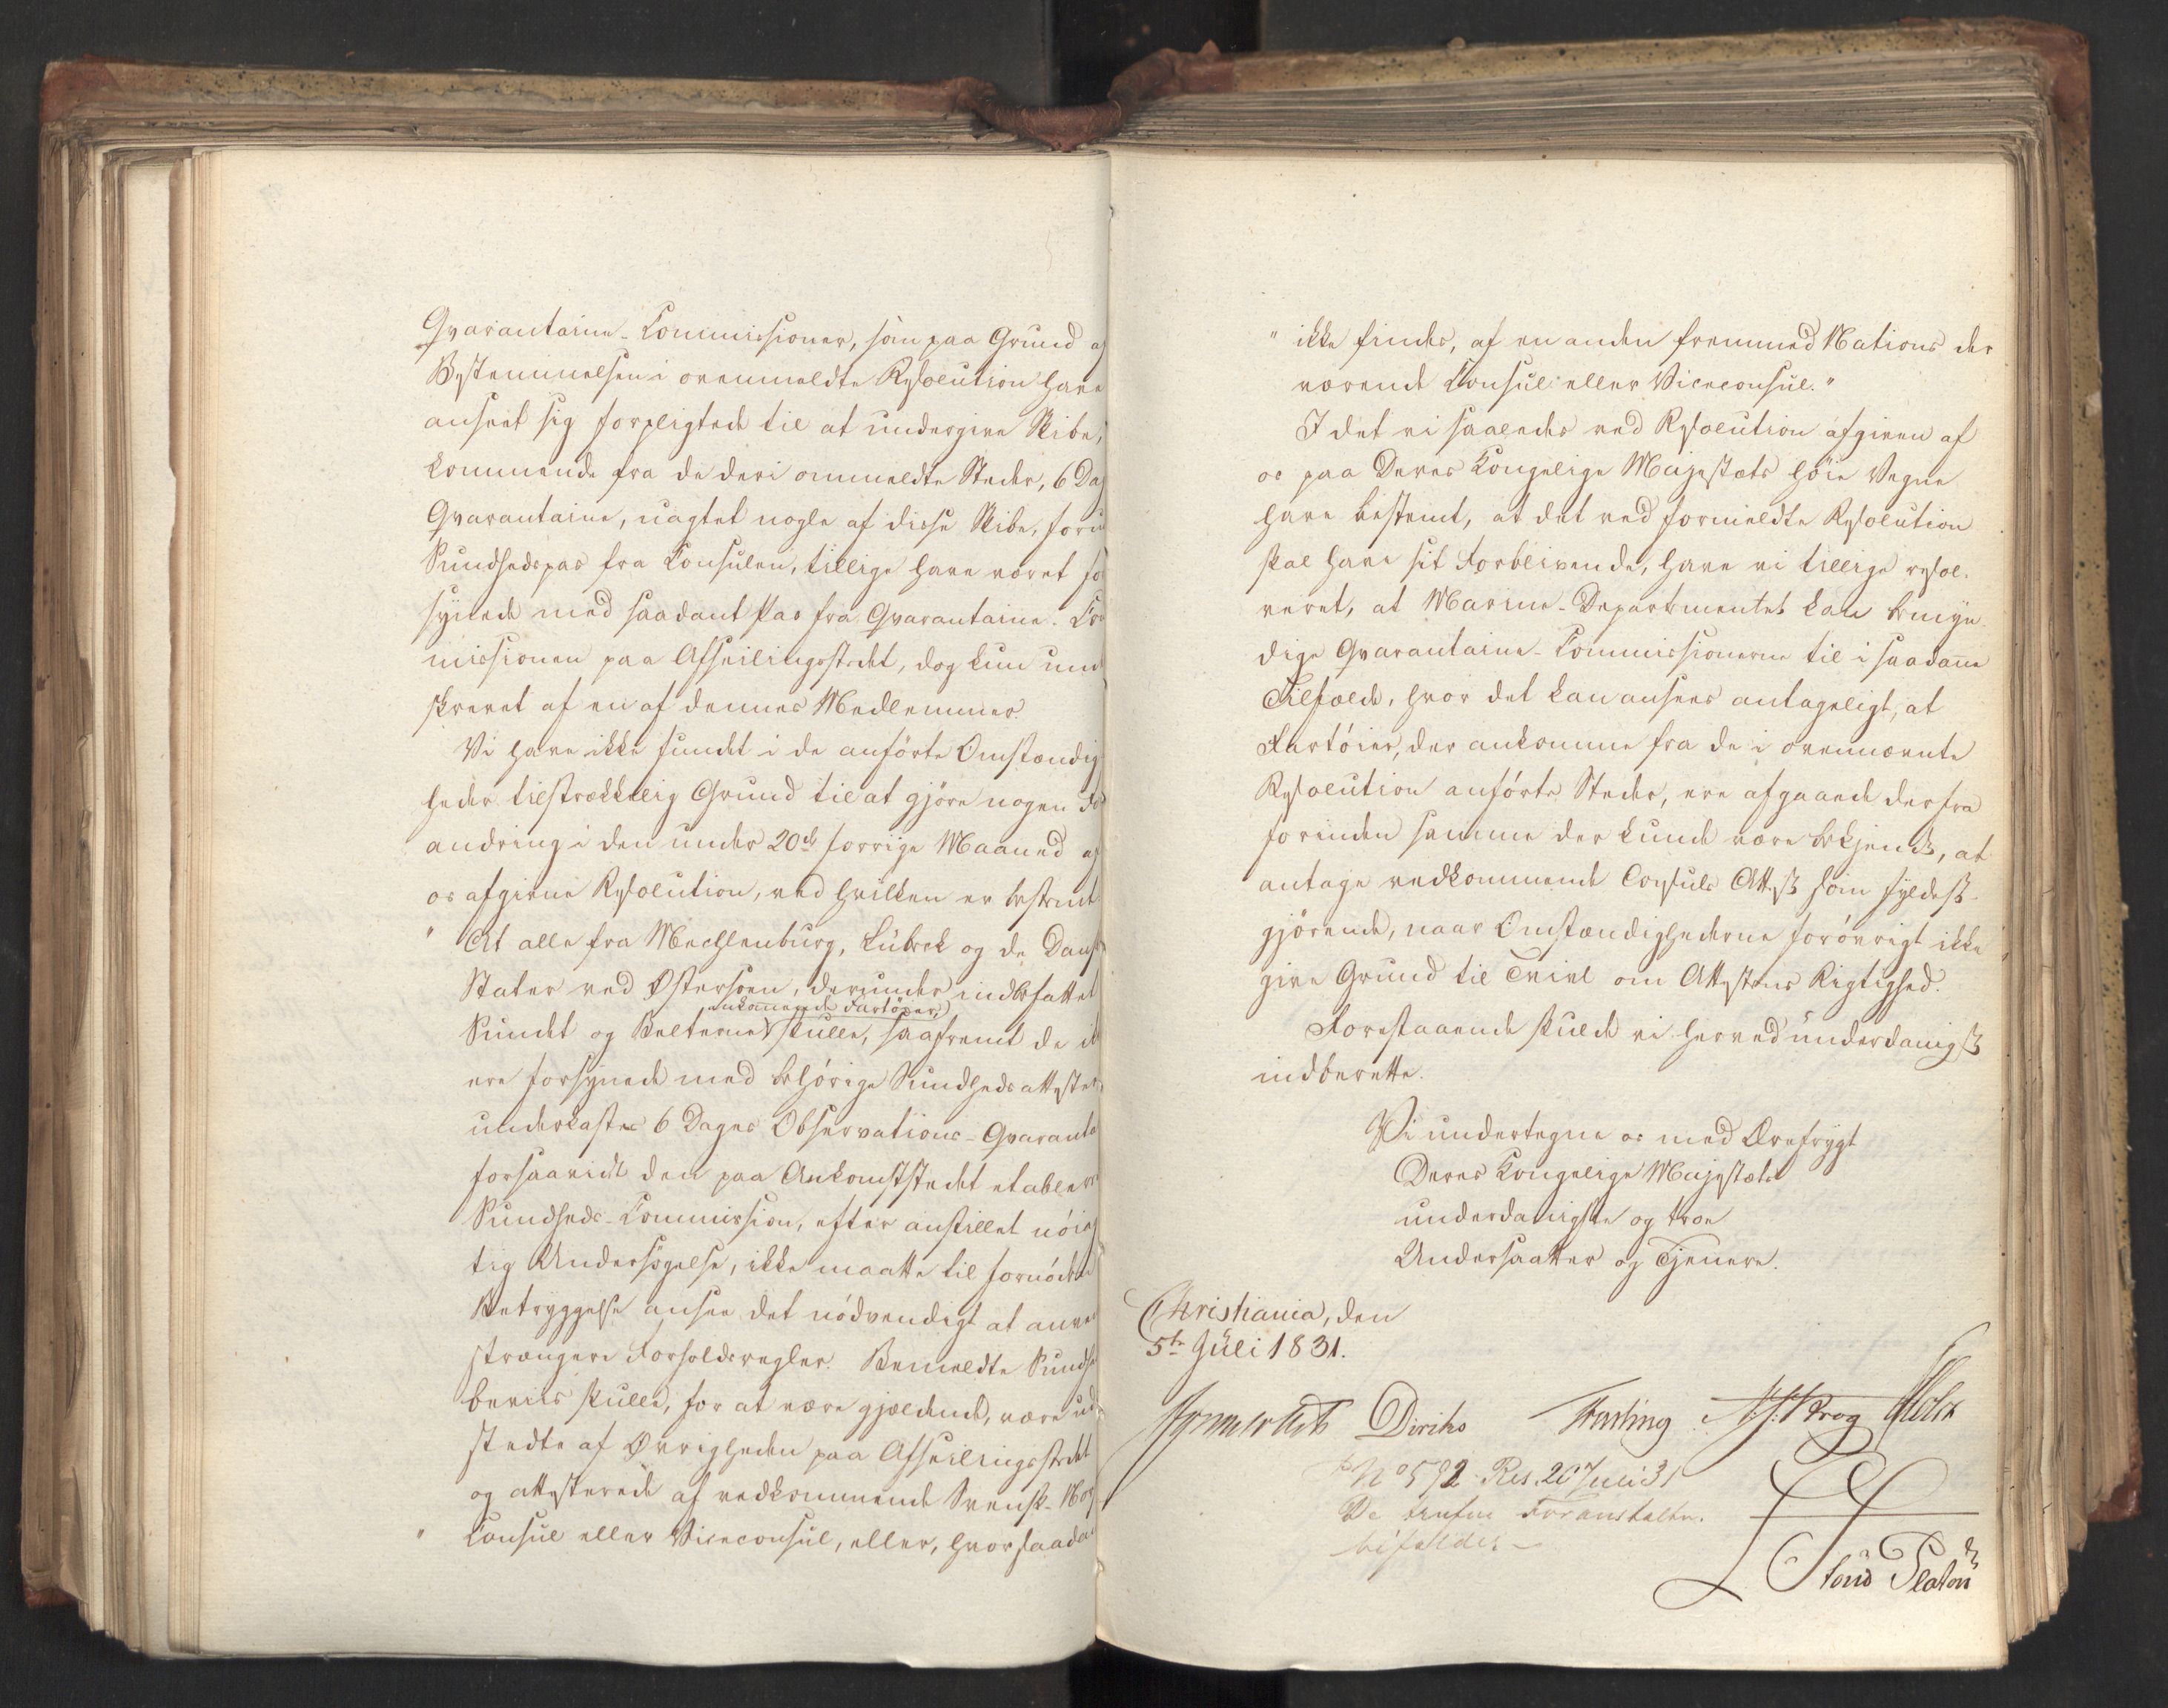 Qvarantaine-Commissioner, som paa Grund af
Bestemmelsen i ovenmeldte Resolution have
anseet sig forpligtede til at undergive Skibe,
kommende fra de deri ommeldte Steder, 6 Dag
Qvarantaine, uagtet nogle af disse Skibe, foru
Sundhedspas fra Consulen, tillige have været for
synede med saadant Pas fra Qvarantaine-Com
missionen paa Afseilingsstedet, dog kun und
skrevet af en af dennes Medlemmer.
Vi have ikke fundet i de anførte Omstændig
heder tilstrækkelig Grund til at gjøre nogen For
andring i den under 20de forrige Maaned af
os afgivne Resolution, ved hvilken er bestemt
" At alle fra Mechlenburg, Lübeck og de Danske
Stater ved Østersøen, derunder indbefattet
ankommende Fartöier,
Sundet og Belterne skulle, saafremt de ik
ere forsynede med behörige Sundhedsattester
underkastes 6 Dages Observations-Qvaranta
forsaavidt den paa Ankomststedet etablere
Sundheds-Commission, efter anstillet nöiag
tig Undersögelse, ikke maatte til fornöden
Betryggelse ansee det nödvendigt at anve
strængere Forholdsregler. Bemeldte Sundhe
beviis skulle, for at være gjældende, være ud
stedte af Øvrigheden paa Afseilingsstedet
og attesterede af vedkommende Svensk-Nor
" Consul eller Viceconsul, eller, hvor saadan
" ikke findes, af en anden fremmed Nations der
værende Consul eller Viceconsul."
I det vi saaledes ved Resolution afgiven af
os paa Deres Kongelige Majestæts høie Vegne
have bestemt, at det ved formeldte Resolution
skal have sit Forblivende, have vi tillige resol-
veret, at Marine-Departementet kan bemyn-
dige Qvarantaine-Commissionerne til i saadanne
Tilfælde, hvor det kan ansees antageligt, at
Fartöier, der ankomme fra de i ovennævnte
Resolution anförte Steder, ere afgaaede derfra
forinden samme der kunde være bekjendt, at
antage vedkommende Consuls Attest som fyldest-
gjörende, naar Omstændighederne forövrigt ikke
give Grund til Tvivl om Attestens Rigtighed.
Forestaaende skulde vi herved underdanigst
indberette.
Vi undertegne os med Ærefrygt
Deres Kongelige Majestæts
underdanigste og troe
Undersaatter og Tjenere.
Christiania, den
5te Juli 1831.
Diriks Fasting Krog Holst
No 592 Res. 20 Juli 31
De trufne Foranstaltn.
bifaldes